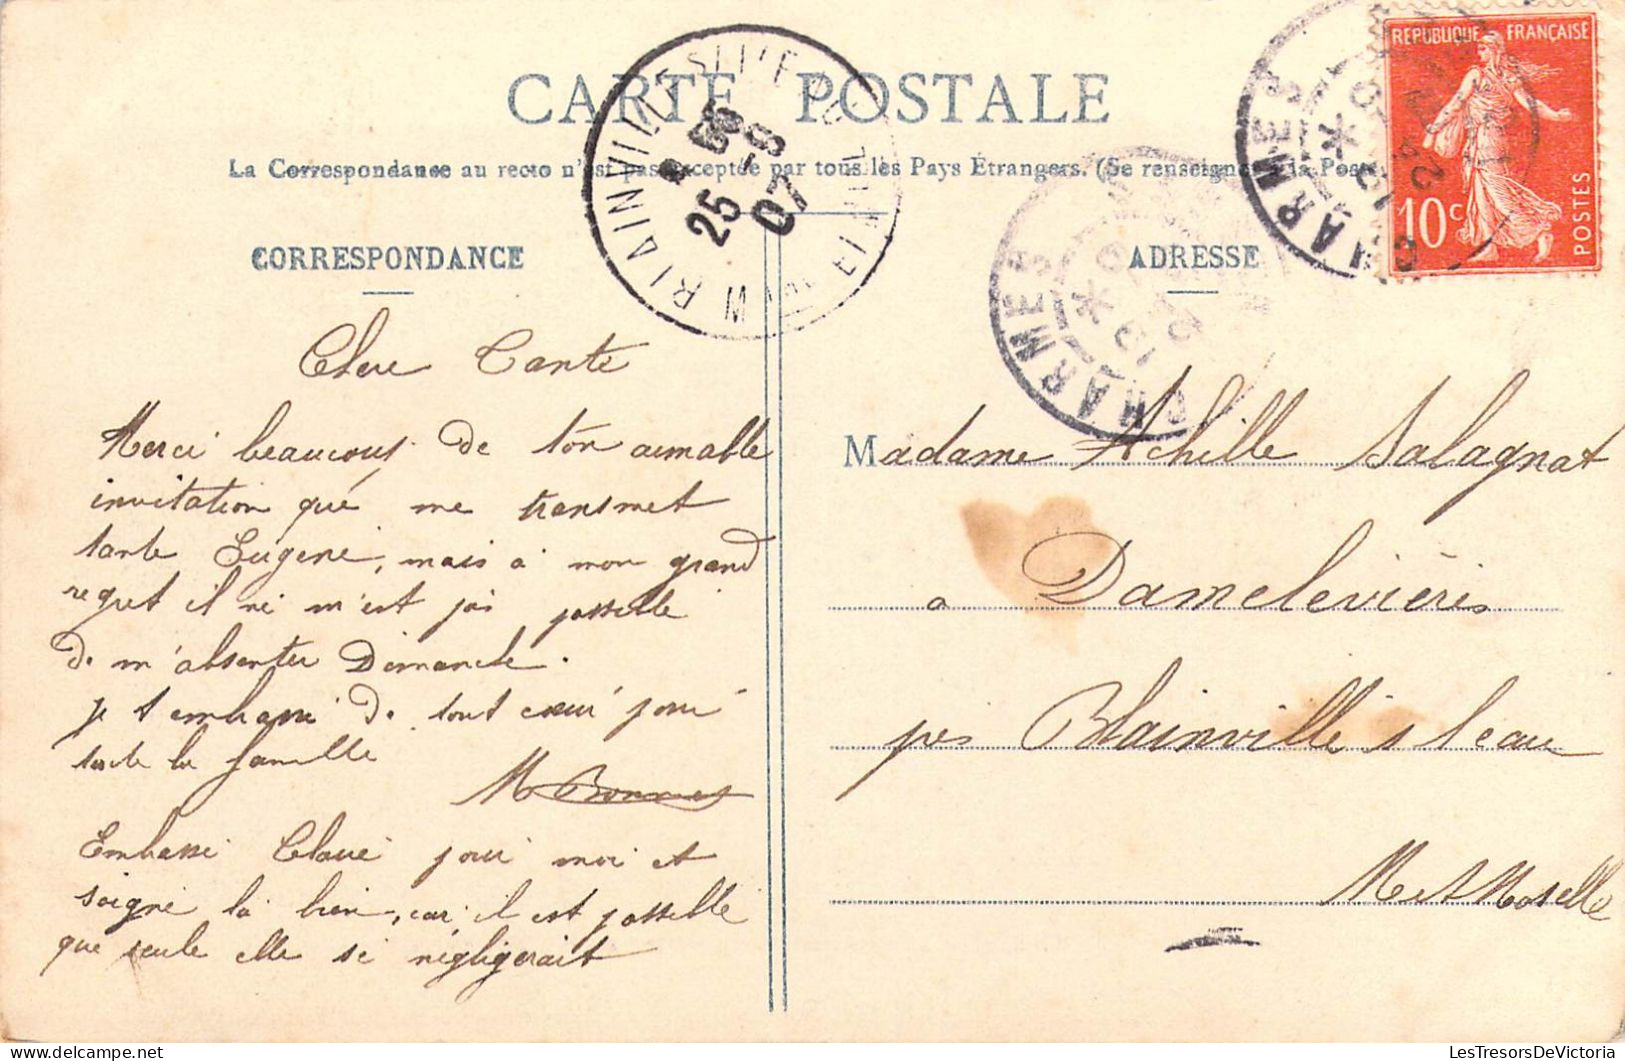 CARTE POSTALE
La Correspondance au recto n'est pas acceptée par tous les Pays Étrangers. (Se renseigner à la Poste
CORRESPONDANCE
Chere Tante
Merci beaucoup de ton aimable
invitation que me transmet
tante Eugene, mais à mon grand
regret il ne m'est pas possible
de m'absenter Dimanche.
je t'embrasse de tout cœur pour
toute la famille
M Bonnet
Embrasse Claire pour moi et
soigne la bien, car il est possible
que seule elle se négligerait
ADRESSE
Madame Achille Salagnat
a Damelevières
près Blainville s l'eau
M et Moselle
REPUBLIQUE FRANÇAISE
10c
POSTES
CHARMES
CHARMES
BLAINVILLE-SUR-L'EAU
25 -8
07
LesTresorsDeVictoria